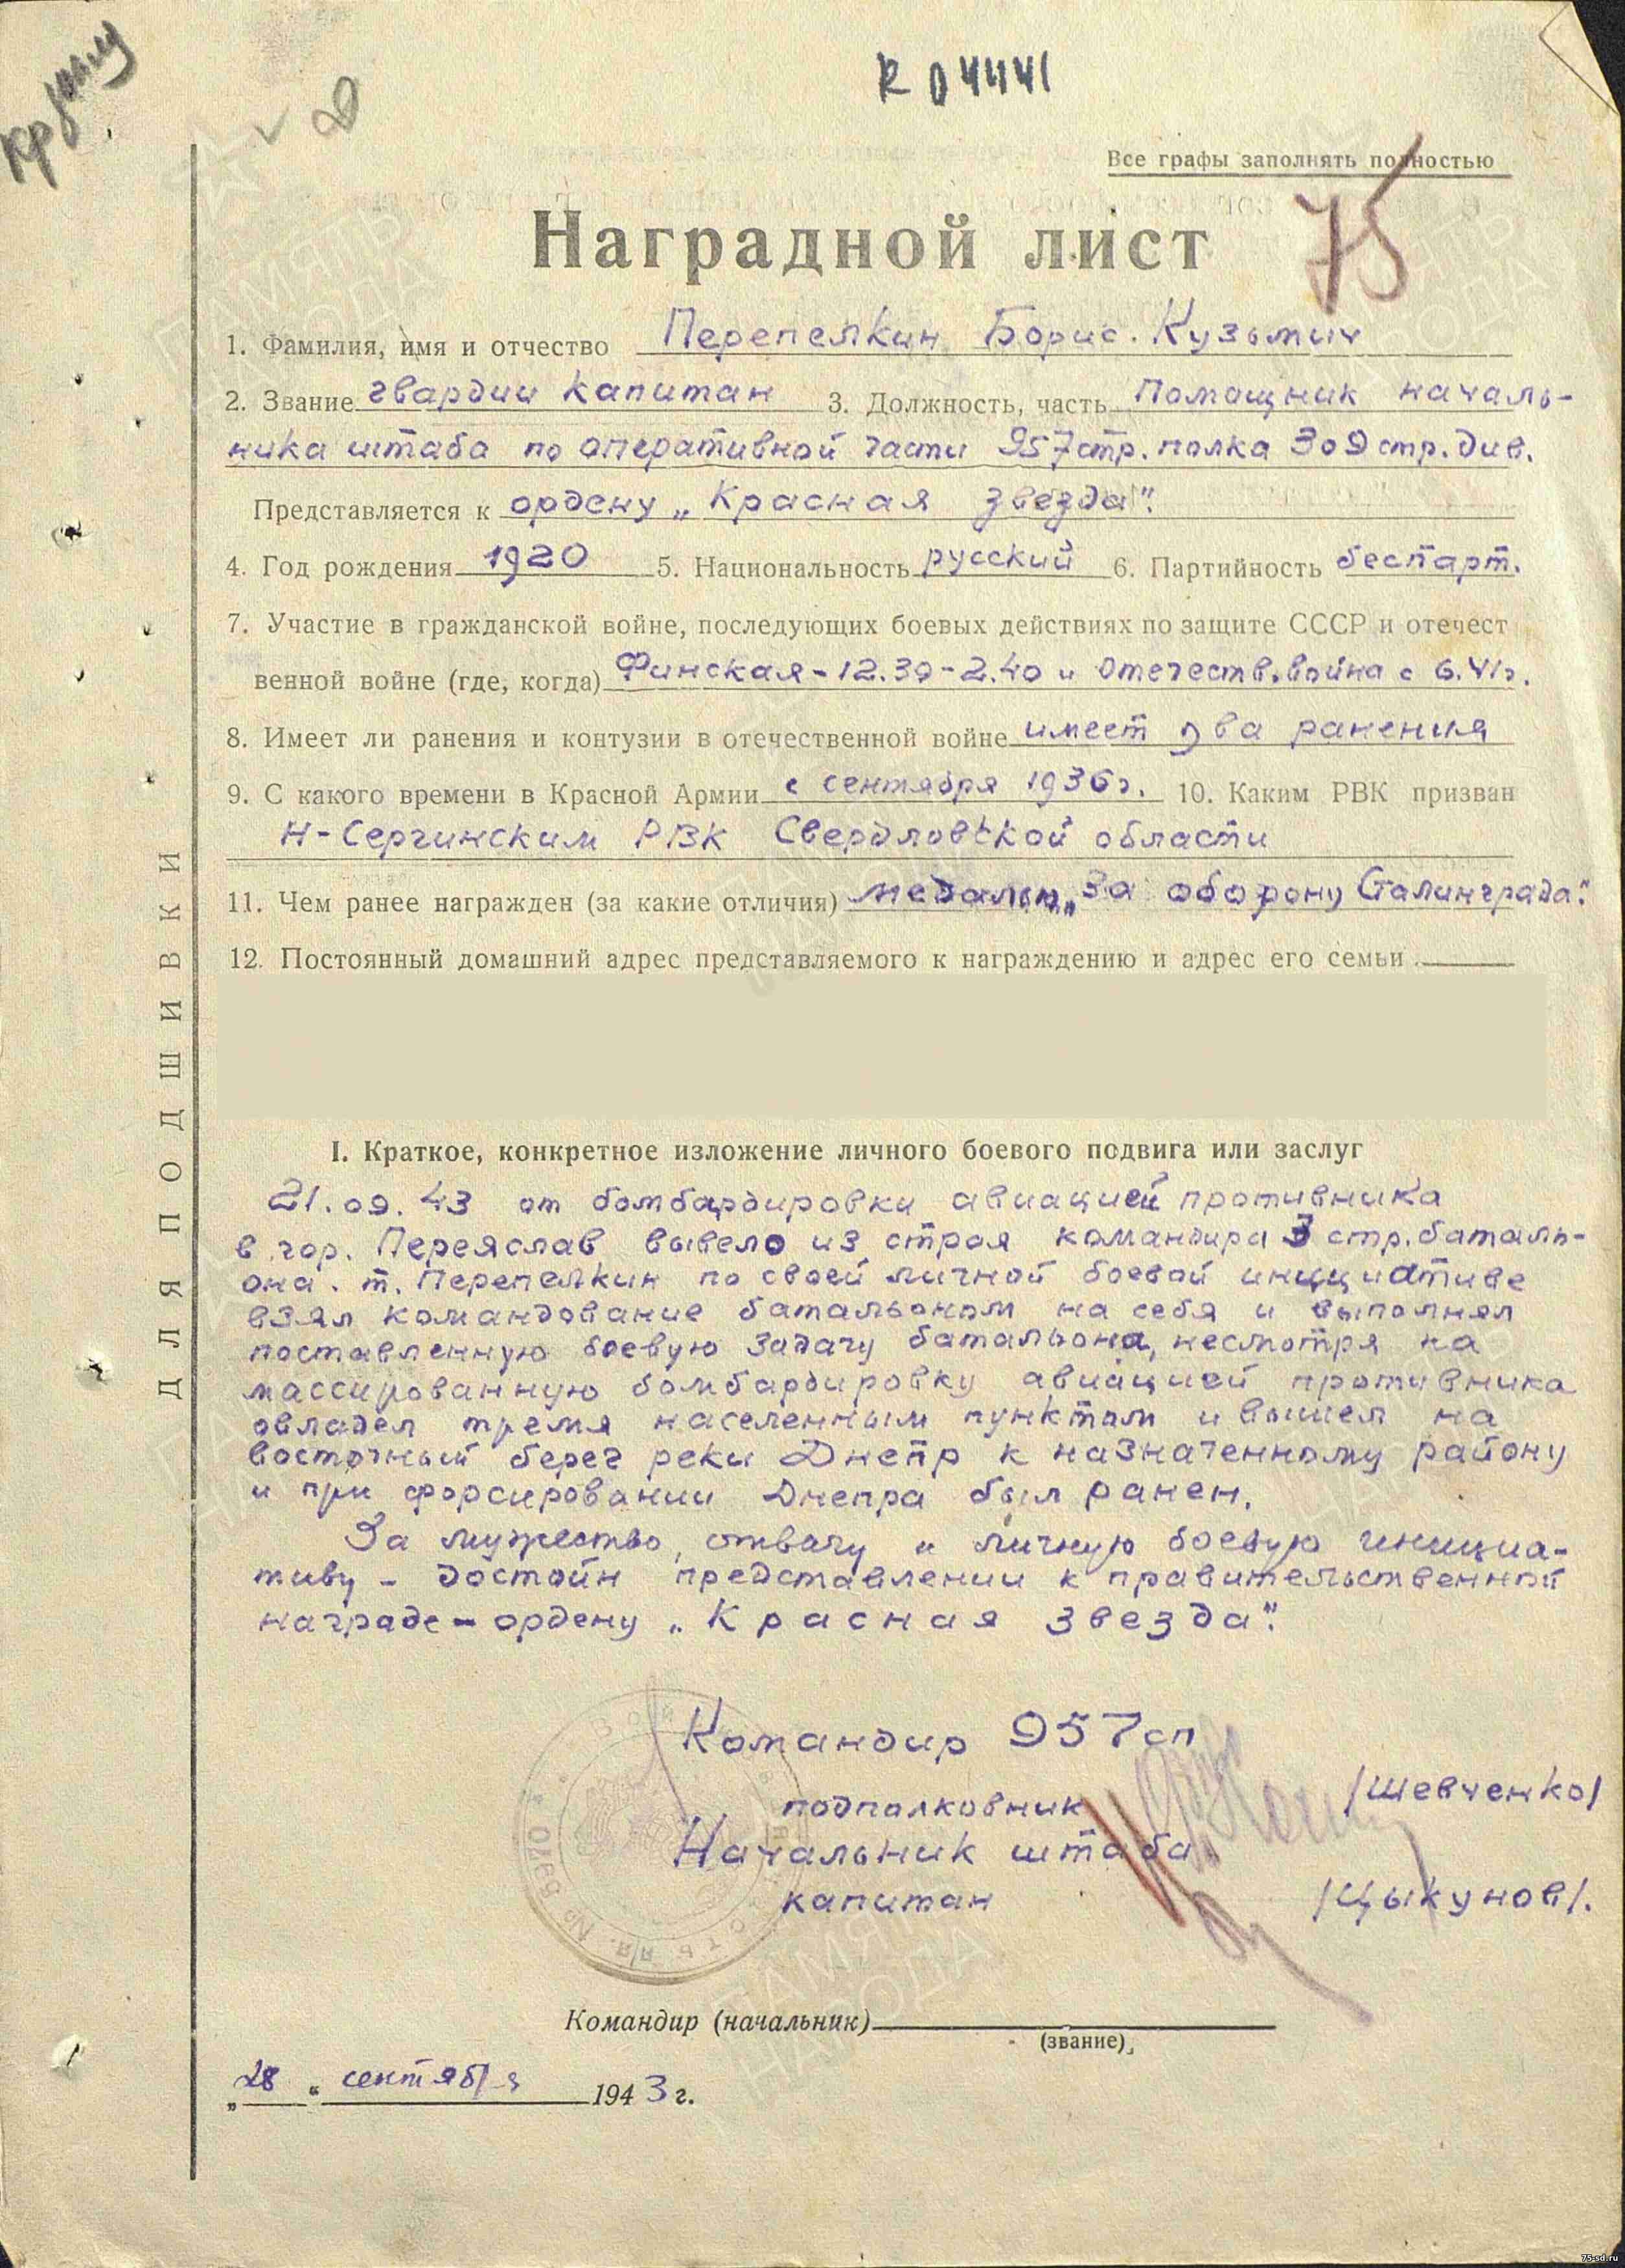 R 04441
Все графы заполнять полностью
75
Наградной лист
1. Фамилия, имя и отчество Перепелкин Борис Кузьмич
2. Звание гвардии капитан 3. Должность, часть Помощник началь-
ника штаба по оперативной части 957 стр. полка 309 стр. див.
Представляется к ордену „Красная звезда".
4. Год рождения 1920 5. Национальность русский 6. Партийность беспарт.
7. Участие в гражданской войне, последующих боевых действиях по защите СССР и отечест
венной войне (где, когда) Финская - 12.39 - 2.40 и Отечеств. война с 6.41г.
8. Имеет ли ранения и контузии в отечественной войне имеет два ранения
9. С какого времени в Красной Армии с сентября 1936г. 10. Каким РВК призван
Н-Сергинским РВК Свердловской области
11. Чем ранее награжден (за какие отличия) медалью „За оборону Сталинграда".
12. Постоянный домашний адрес представляемого к награждению и адрес его семьи
I. Краткое, конкретное изложение личного боевого подвига или заслуг
21.09.43 от бомбардировки авиацией противника
в гор. Переяслав вывело из строя командира 3 стр. баталь-
она. т. Перепелкин по своей личной боевой инициативе
взял командование батальоном на себя и выполнял
поставленную боевую задачу батальона, несмотря на
массированную бомбардировку авиацией противника
овладел тремя населенным пунктам и вышел на
восточный берег реки Днепр к назначенному району
и при форсировании Днепра был ранен.
За мужество, отвагу и личную боевую инициа-
тиву - достоин представлении к правительственной
награде - ордену „Красная звезда".
Командир 957сп
подполковник /Шевченко/
Начальник штаба
капитан /Цыкунов/.
Командир (начальник)
(звание)
„28" сентября 1943 г.
ДЛЯ ПОДШИВКИ
ПАМЯТЬ НАРОДА
75-sd.ru